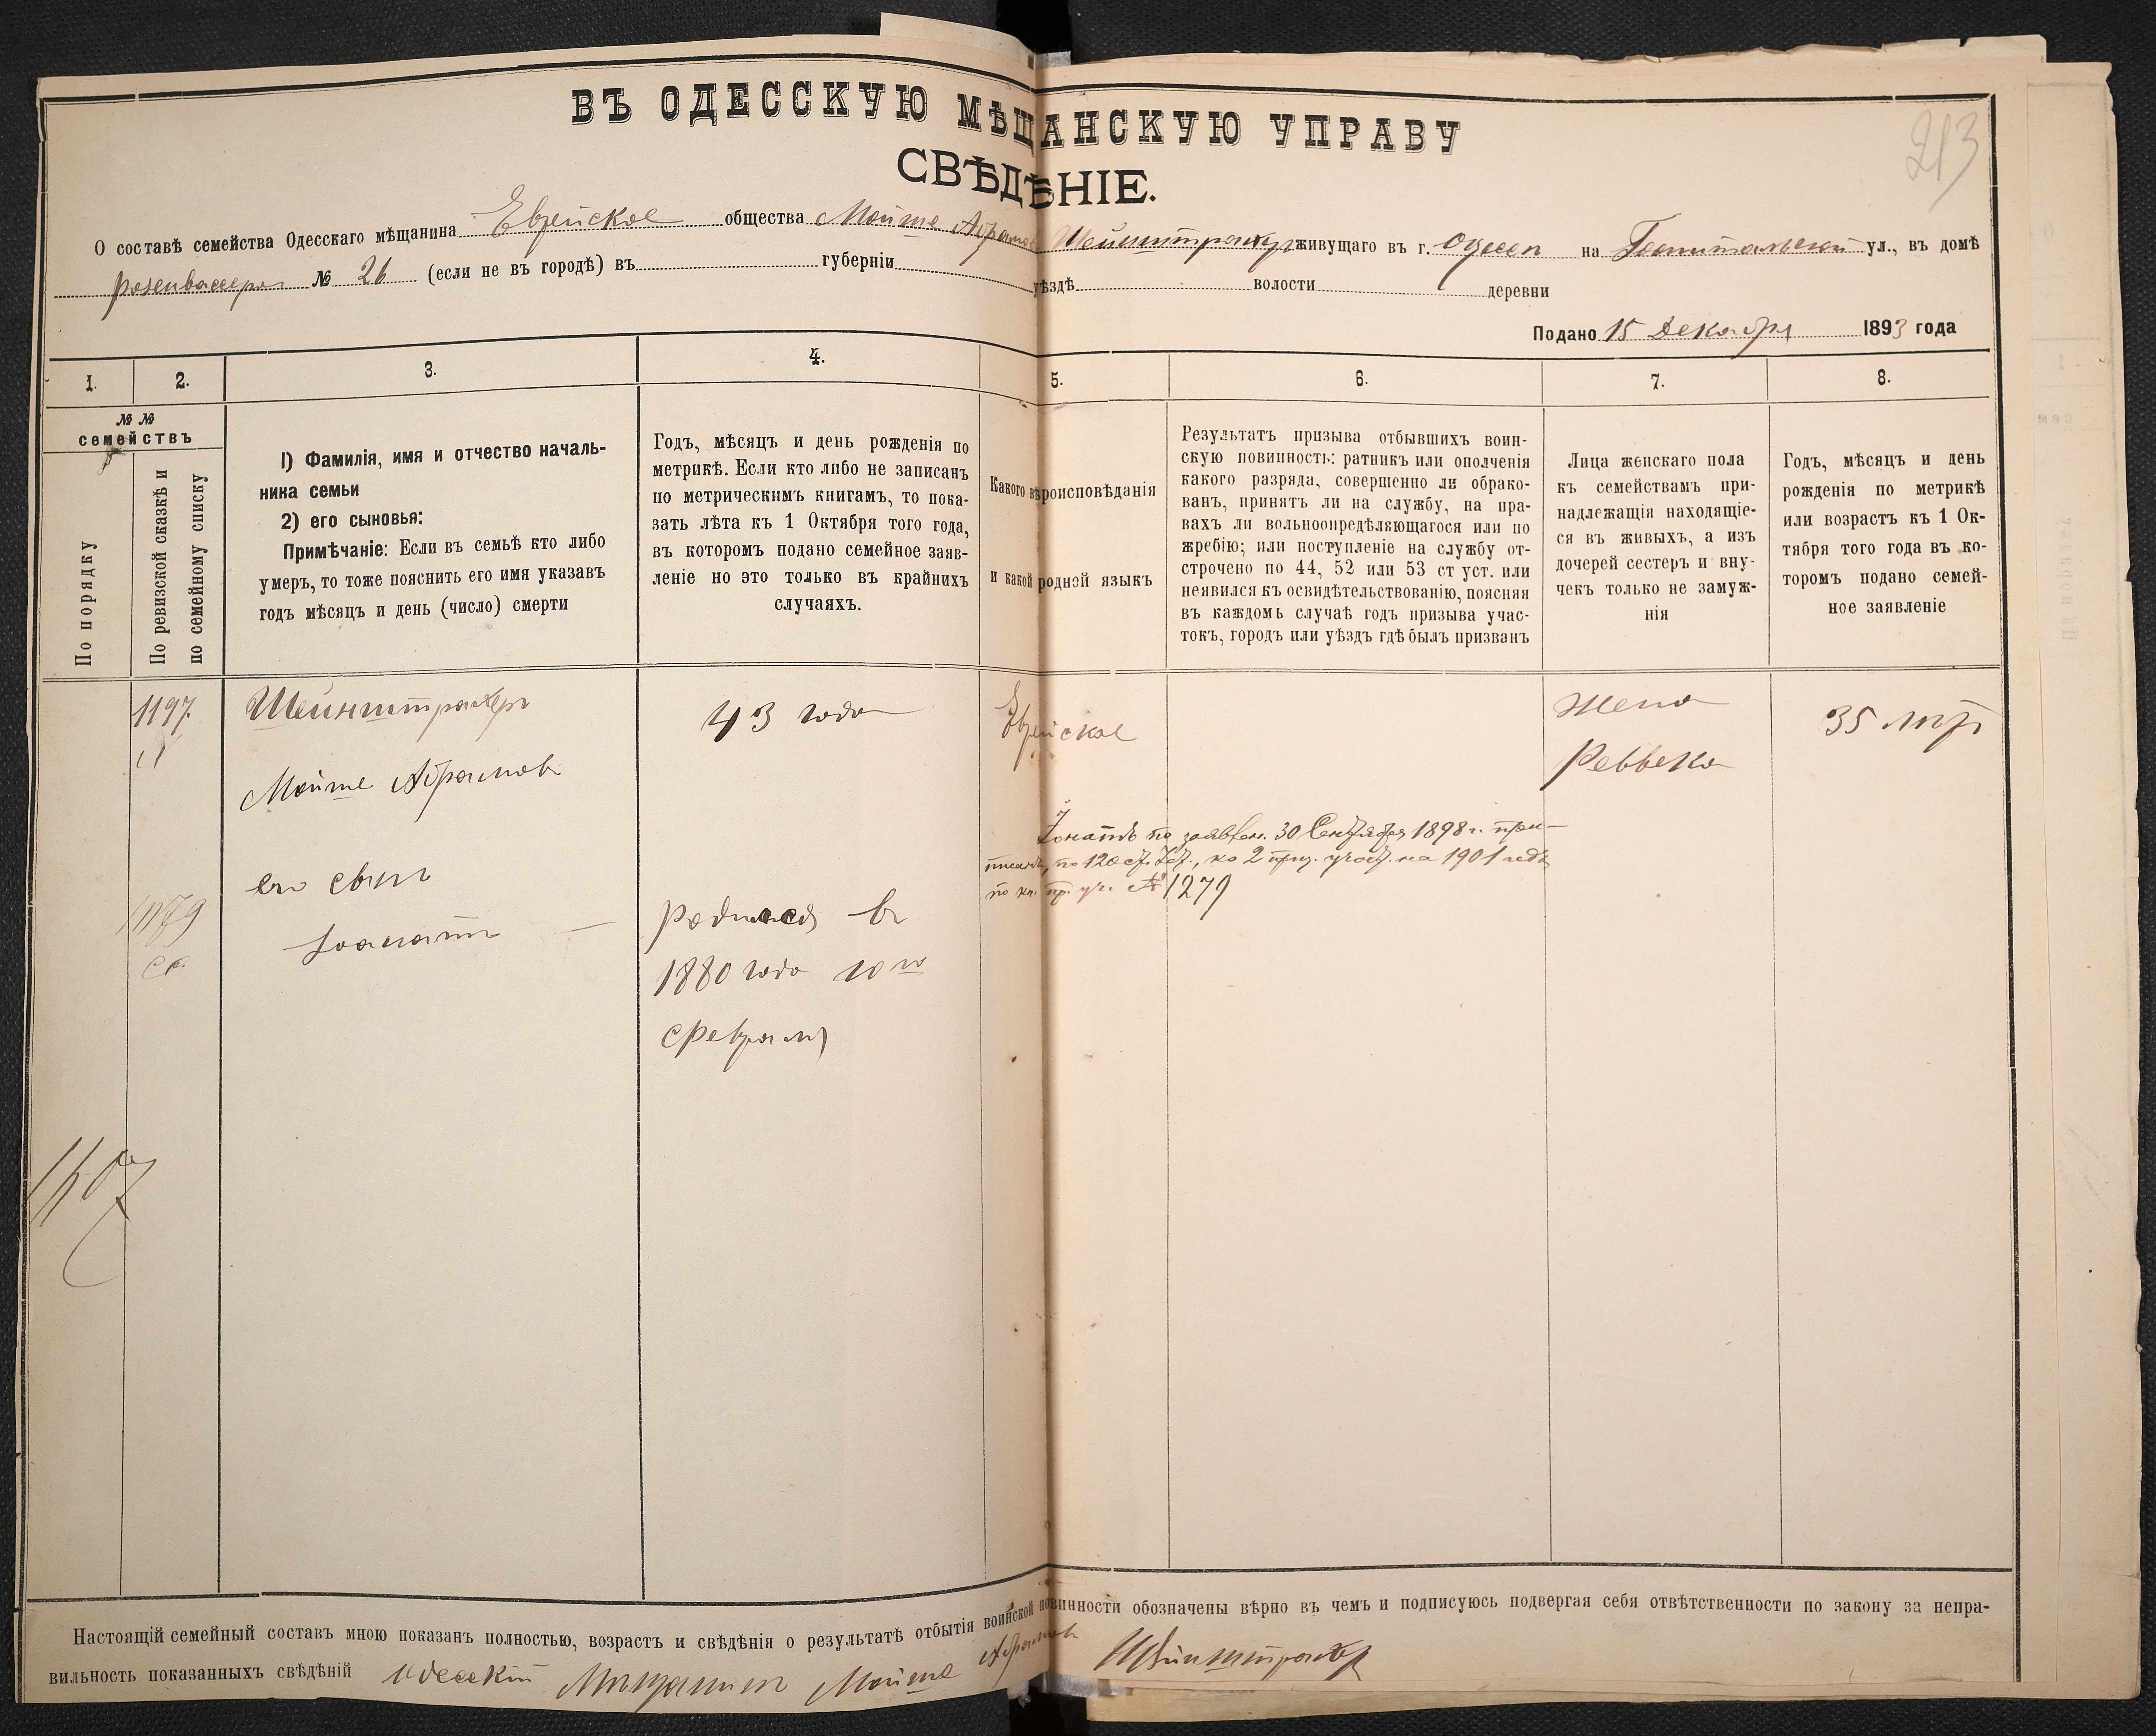 ВЪ ОДЕССКУЮ МѢЩАНСКУЮ УПРАВУ
213
СВѢДѢНІЕ.
О составѣ семейства Одесскаго мѣщанина Еврейское общества Мойше Абрамов Шейнштрахер живущаго въ г. Одесѣ на Госпитальской ул., въ домѣ
Розенвассера № 26 (если не въ городѣ) въ губерніи уѣздѣ волости деревни
Подано 15 Декабря 1893 года
1. 2. 3. 4. 5. 6. 7. 8.
№ №
семействъ
По порядку
По ревизской сказкѣ и
по семейному списку
1) Фамилія, имя и отчество началь-
ника семьи
2) его сыновья:
Примѣчаніе: Если въ семьѣ кто либо
умеръ, то тоже пояснить его имя указавъ
годъ мѣсяцъ и день (число) смерти
Годъ, мѣсяцъ и день рожденія по
метрикѣ. Если кто либо не записанъ
по метрическимъ книгамъ, то пока-
зать лѣта къ 1 Октября того года,
въ которомъ подано семейное заяв-
леніе но это только въ крайнихъ
случаяхъ.
Какого вѣроисповѣданія
и какой родной языкъ
Результатъ призыва отбывшихъ воин-
скую повинность: ратникъ или ополченія
какого разряда, совершенно ли обрако-
ванъ, принятъ ли на службу, на пра-
вахъ ли вольноопредѣляющагося или по
жребію; или поступленіе на службу от-
строчено по 44, 52 или 53 ст уст. или
неявился къ освидѣтельствованію, поясняя
въ каждомъ случаѣ годъ призыва учас-
токъ, городъ или уѣздъ гдѣ былъ призванъ
Лица женскаго пола
къ семействамъ при-
надлежащія находящіе-
ся въ живыхъ, а изъ
дочерей сестеръ и вну-
чекъ только не замуж-
нія
Годъ, мѣсяцъ и день
рожденія по метрикѣ
или возрастъ къ 1 Ок-
тября того года въ ко-
торомъ подано семей-
ное заявленіе
1197
Шейнштрахер
Мойше Абрамов
43 года
Еврейское
Жена
Реввека
35 лѣт
Іонатъ по заявлен. 30 Сентября 1898 г. при-
писанъ, по 120 ст. Уст., ко 2 приз. участ. на 1901 годъ
по кн. пр. уч. № 1279
его сын
Іонат
родился в
1880 года 10 го
февраля
Настоящій семейный составъ мною показанъ полностью, возрастъ и свѣдѣнія о результатѣ отбытія воинской повинности обозначены вѣрно въ чемъ и подписуюсь подвергая себя отвѣтственности по закону за непра-
вильность показанныхъ свѣдѣній Одесскій Мѣщанин Мойше Абрамов Шейнштрахер